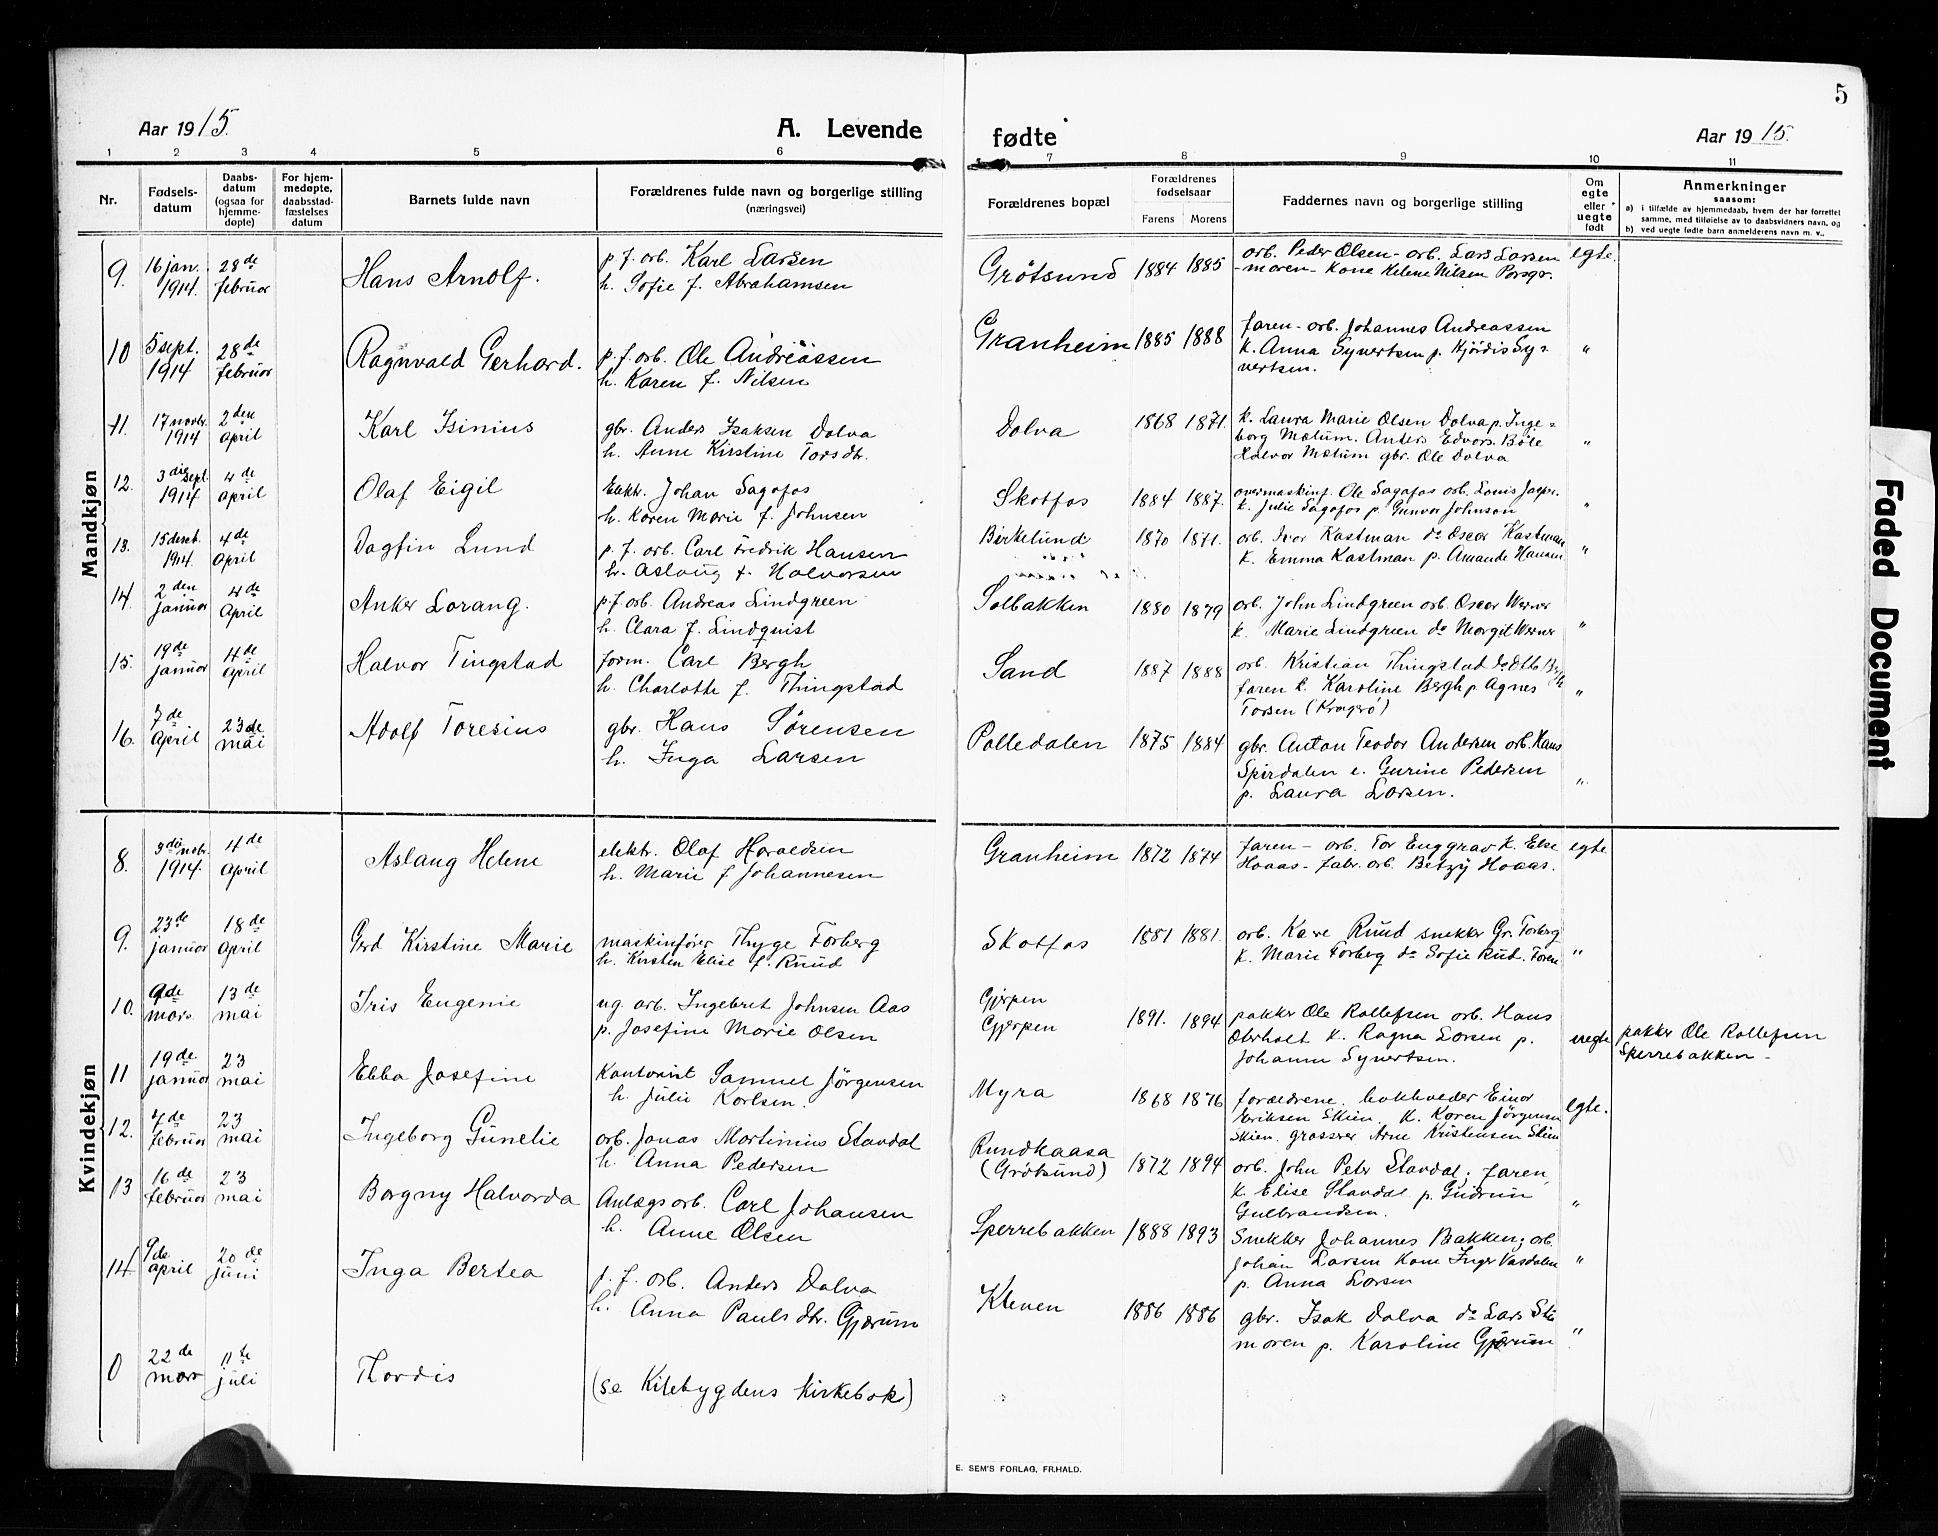 5
Aar 1915.
A. Levende fødte
Aar 1915.
1 2 3 4 5 6 7 8 9 10 11
Nr.
Fødsels-
datum
Daabs-
datum
(ogsaa for
hjemme-
døpte)
For hjem-
medøpte,
daabsstad-
fæstelses
datum
Barnets fulde navn
Forældrenes fulde navn og borgerlige stilling
(næringsvei)
Forældrenes bopæl
Forældrenes
fødselsaar
Farens Morens
Faddernes navn og borgerlige stilling
Om
egte
eller
uegte
født
Anmerkninger
saasom:
a) i tilfælde av hjemmedaab, hvem der har forrettet
samme, med tilføielse av to daabsvidners navn, og
b) ved uegte fødte barn anmelderens navn m. v.,
Mandkjøn
9. 16 jan. 1914. 28de februar Hans Arnolf. p. f. orb. Karl Larsen
h. Sofie f. Abrahamsen
Grøtsund 1884 1885 orb. Peder Olsen - orb. Lars Larsen egte.
- moren - Kone Helene Nilsen Porsgr.
10 5 sept. 1914 28de februar Ragnvald Gerhard. p. f. orb. Ole Andreassen
h. Karen f. Nilsen
Granheim 1885 1888 faren - orb. Johannes Andreassen
k. Anna Syvertsen p. Hjördis Sy-
vertsen. "
11. 17 novbr. 1914 2den April Karl Isinius gbr. Anders Isaksen Dolva
h. Anne Kirstine Torsdtr.
Dolva 1868 1871. k. Laura Marie Olsen Dolva p. Inge-
borg Mætum. Anders Edvors. Böle
Halvor Mætum gbr. Ole Dolva "
12. 3die sept. 1914 4de April Olaf Eigil Elektr. Johan Sagafos
h. Karen Marie f. Johnsen
Skotfos 1884 1887. overmaskinf. Ole Sagafos orb. Louis Jaspr.
k. Julie Sagafos p. Gunvor Johnson "
13. 15 desbr. 1914. 4de April Dagfin Lund p. f. orb. Carl Fredrik Hansen
h. Aslaug f. Halvorsen
Birkelund 1870 1871. orb. Ivor Kastman do Oscar Kastman
k. Emma Kastman p. Amanda Hansen "
14. 2den januar 4de April Anker Lorang. p. f. orb. Andreas Lindgreen
h. Clara f. Lindquist
Solbakken 1880 1879 orb. John Lindgreen orb. Oscar Werner
k. Marie Lindgreen do Margit Werner "
15. 19de januar 4de April Halvor Tingstad form. Carl Bergh
h. Charlotte f. Thingstad
Sand 1887 1888 orb. Kristian Thingstad do Otto Bergh
faren k. Karoline Bergh p. Agnes
Torsen (Kragerö) "
16. 7de April 23de mai Adolf Toresius gbr. Hans Sörensen
h. Inga Larsen
Polledalen 1875 1884 gbr. Anton Teodor Andersen orb. Hans
Spirdalen e. Gurine Pedersen
p. Laura Larsen. "
Kvindekjøn
8. 3die novbr. 1914. 4de April Aslaug Helene elektr. Olaf Haraldsen
h. Marie f Johannesen
Granheim 1872 1874 faren - orb. Tor Enggrav k. Else egte
Hoaas - fabr. orb. Betzy Hoaas.
9. 23de januar 18de April Gerd Kirstine Marie maskinfører Thyge Forberg
h. Kirsten Elise f. Ruud
Skotfos 1881 1881. orb. Kare Ruud snekker Gr. Forberg
k. Marie Forberg do Sofie Rud. Faren "
10. 9de mars. 13de mai Iris Eugenie ug. orb. Ingebret Johnsen Aas
p. Josefine Marie Olsen
Gjerpen
Gjerpen 1891. 1894 pakker Ole Rollefsen orb. Hans
Oterholt k. Ragna Larsen p.
Johanne Syvertsen. uegte pakker Ole Rollefsen
Sperrebakken -
11 19de januar 23 mai Ebba Josefine Kontorist Samuel Jörgensen
h. Julie Karlsen.
Myra 1868 1876 forældrene, bokholder Einar egte.
Eriksen Skien, k. Karen Jörgensen
Skien. grosserer Arne Kristensen Skien
12. 7de februar 23 mai Ingeborg Gunelie orb. Jonas Martinius Stavdal
h. Anna Pedersen
Rundkaasa
(Grötsund) 1872 1894 orb. John Peter Stavdal, faren,
k. Elise Stavdal p. Gudrun
Gulbrandsen. "
13 16de februar 23 mai Borgny Halvorda Anlægs orb. Carl Johansen
h. Anne Olsen
Sperrebakken 1888 1893 Snekker Johannes Bakken, orb.
Johan Larsen Kone Inger Vasdalen
p. Anna Larsen "
14. 9de April 20de juni Inga Bertea p. f. orb. Anders Dolva
h. Anna Paulsdtr. Gjærum
Kleven 1886 1886 gbr. Isak Dolva do Lars Ski
moren p. Karoline Gjærum "
0 22de mars 11te juli Thordis (se Kilebygdens kirkebok)
E. SEM'S FORLAG, FR.HALD.
Faded Document